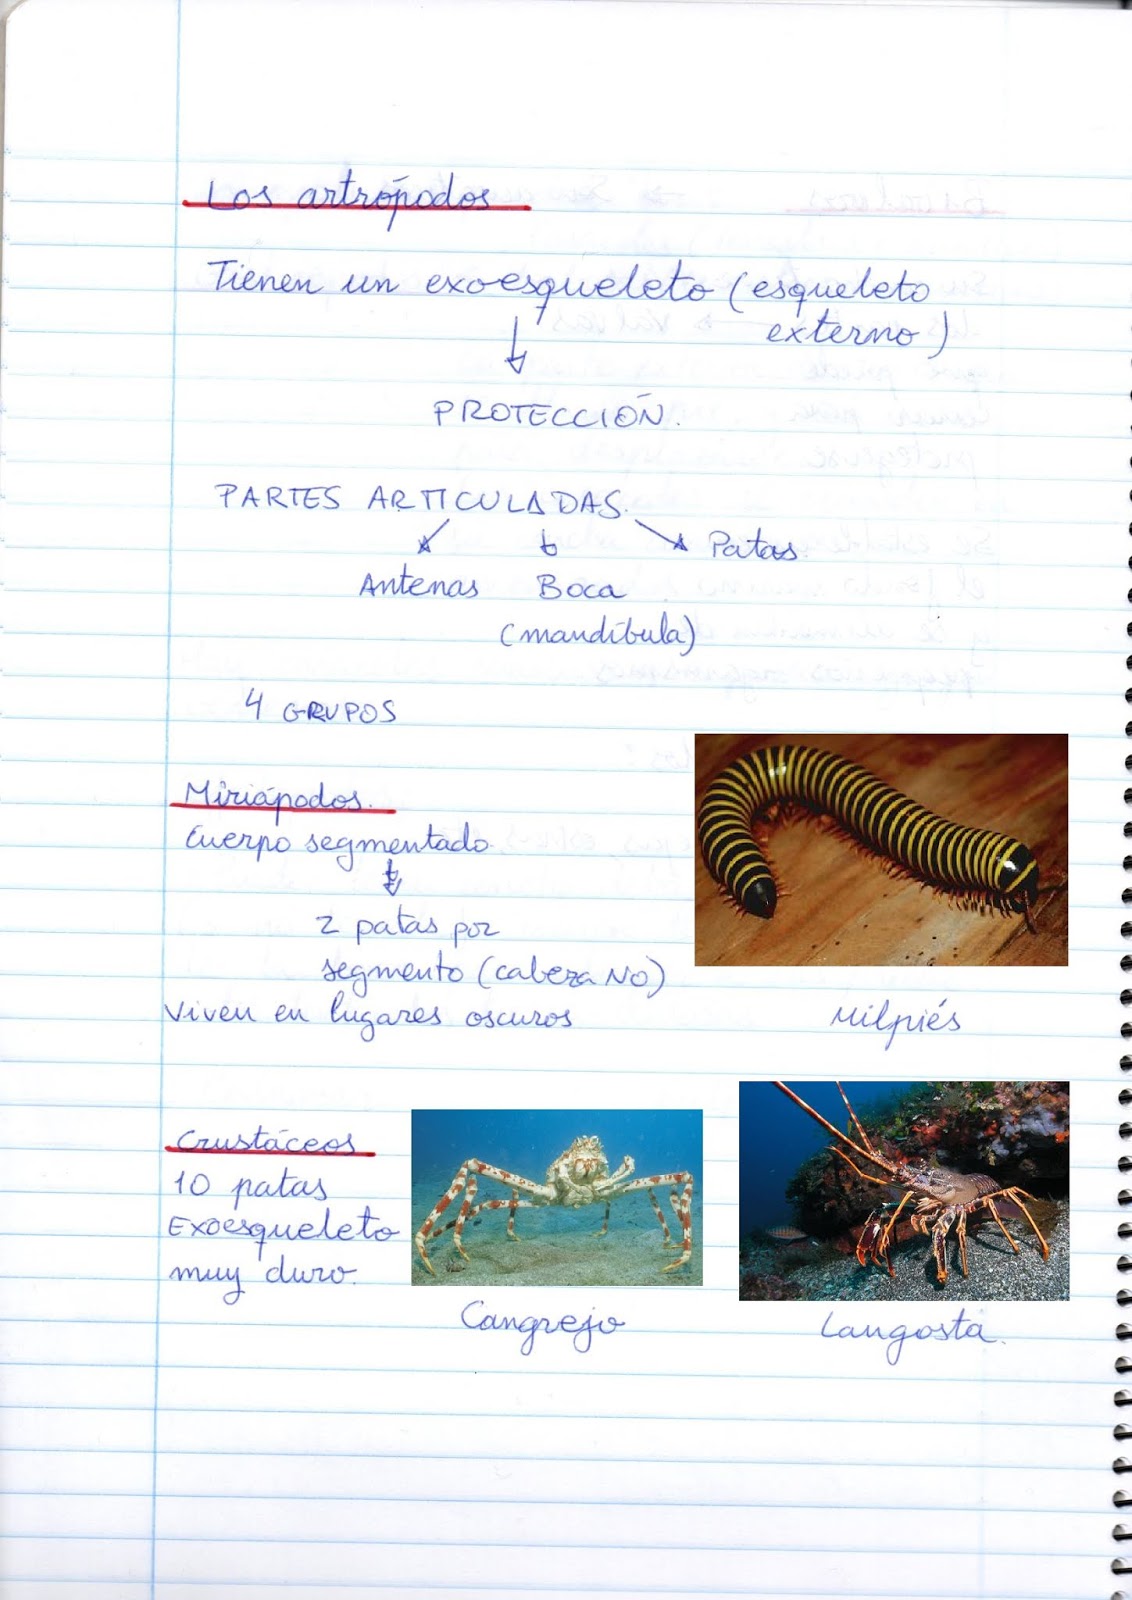 Los artrópodos
Tienen un exoesqueleto (esqueleto
externo)
PROTECCIÓN.
PARTES ARTICULADAS.
Antenas Boca Patas.
(mandíbula)
4 GRUPOS
Miriápodos.
Cuerpo segmentado.
2 patas por
segmento (cabeza NO)
Viven en lugares oscuros
Milpiés
Crustáceos
10 patas
Exoesqueleto
muy duro.
Cangrejo
Langosta.